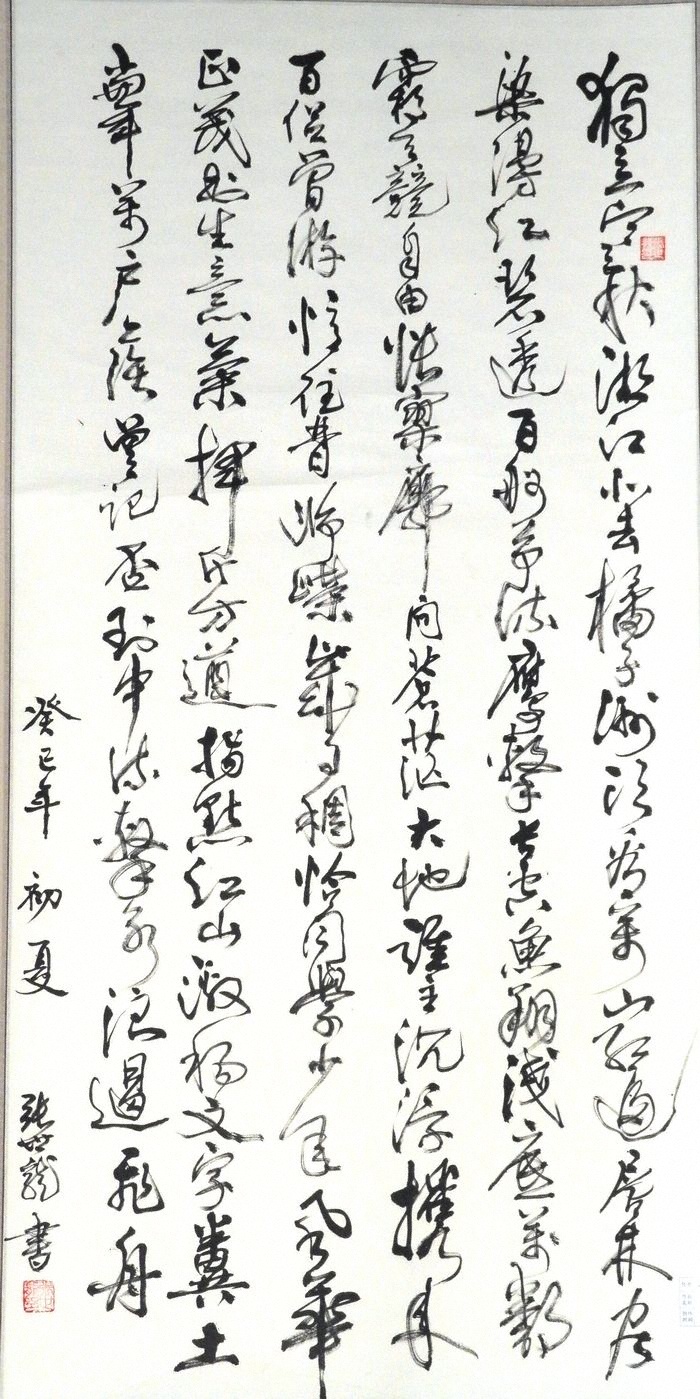 獨立寒秋湘江北去橘子洲頭看萬山紅遍層林尽
染漫江碧透百舸爭流鷹擊長空魚翔淺底萬類
霜天競自由悵寥廓問蒼茫大地誰主沉浮攜來
百侣曾游憶往昔崢嶸歲月稠恰同學少年風華
正茂書生意氣揮斥方遒指點江山激揚文字糞土
當年萬户侯曾記否到中流擊水浪遏飛舟
癸巳年 初夏 張世龍書